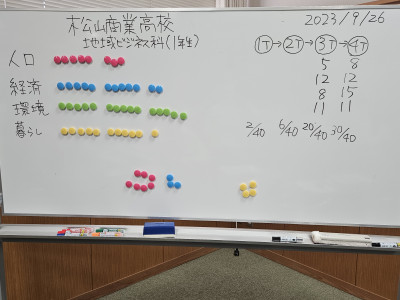 松山商業高校
地域ビジネス科(1年生)
2023/9/26
1T→2T→3T→4T
人口 5 8
経済 12 12
環境 8 15
暮らし 11 11
2/40 6/40 20/40 30/40